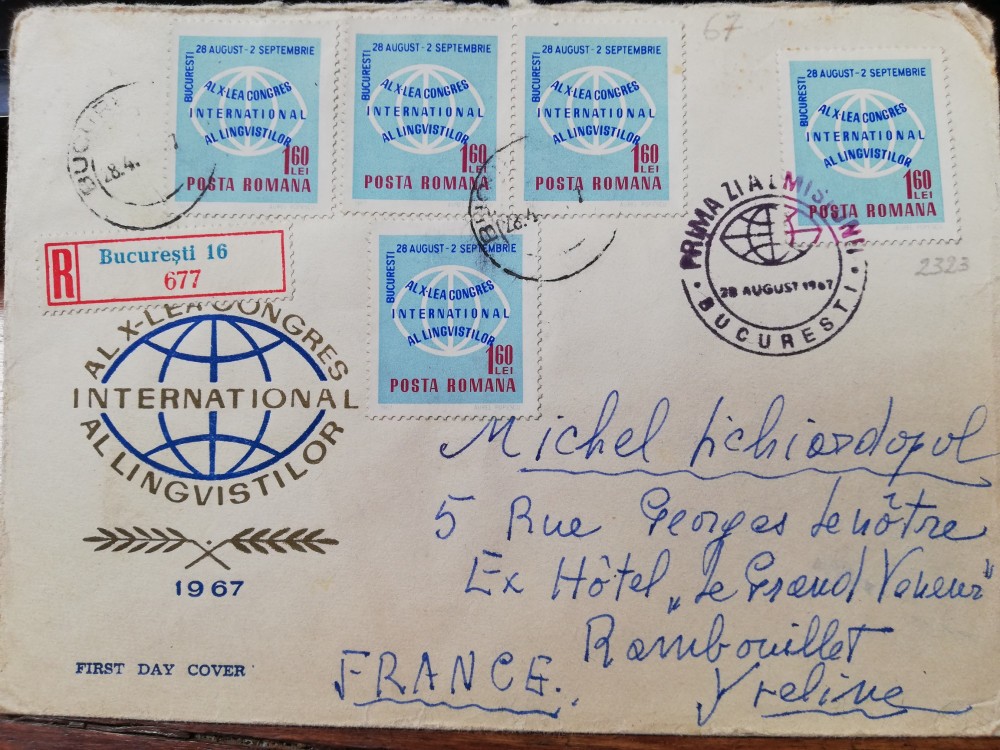 67
BUCUREȘTI
28 AUGUST-2 SEPTEMBRIE
AL X-LEA CONGRES
INTERNATIONAL
AL LINGVISTILOR
1 60
LEI
POSTA ROMANA
BUCURESTI
28 AUGUST-2 SEPTEMBRIE
AL X-LEA CONGRES
INTERNATIONAL
AL LINGVISTILOR
1 60
LEI
POSTA ROMANA
BUCURESTI
28 AUGUST-2 SEPTEMBRIE
AL X-LEA CONGRES
INTERNATIONAL
AL LINGVISTILOR
1 60
LEI
POSTA ROMANA
BUCURESTI
28 AUGUST-2 SEPTEMBRIE
AL X-LEA CONGRES
INTERNATIONAL
AL LINGVISTILOR
1 60
LEI
POSTA ROMANA
28.4.
28.4
PRIMA ZI A EMISIUNII
28 AUGUST 1967
BUCURESTI
2323
R
București 16
677
BUCURESTI
28 AUGUST-2 SEPTEMBRIE
AL X-LEA CONGRES
INTERNATIONAL
AL LINGVISTILOR
1 60
LEI
POSTA ROMANA
AL X-LEA CONGRES
INTERNATIONAL
AL LINGVISTILOR
1967
FIRST DAY COVER
Michel Lichiardopol
5 Rue Georges Lenôtre
Ex Hôtel „Le Grand Veneur"
Rambouillet
Yveline
FRANCE.